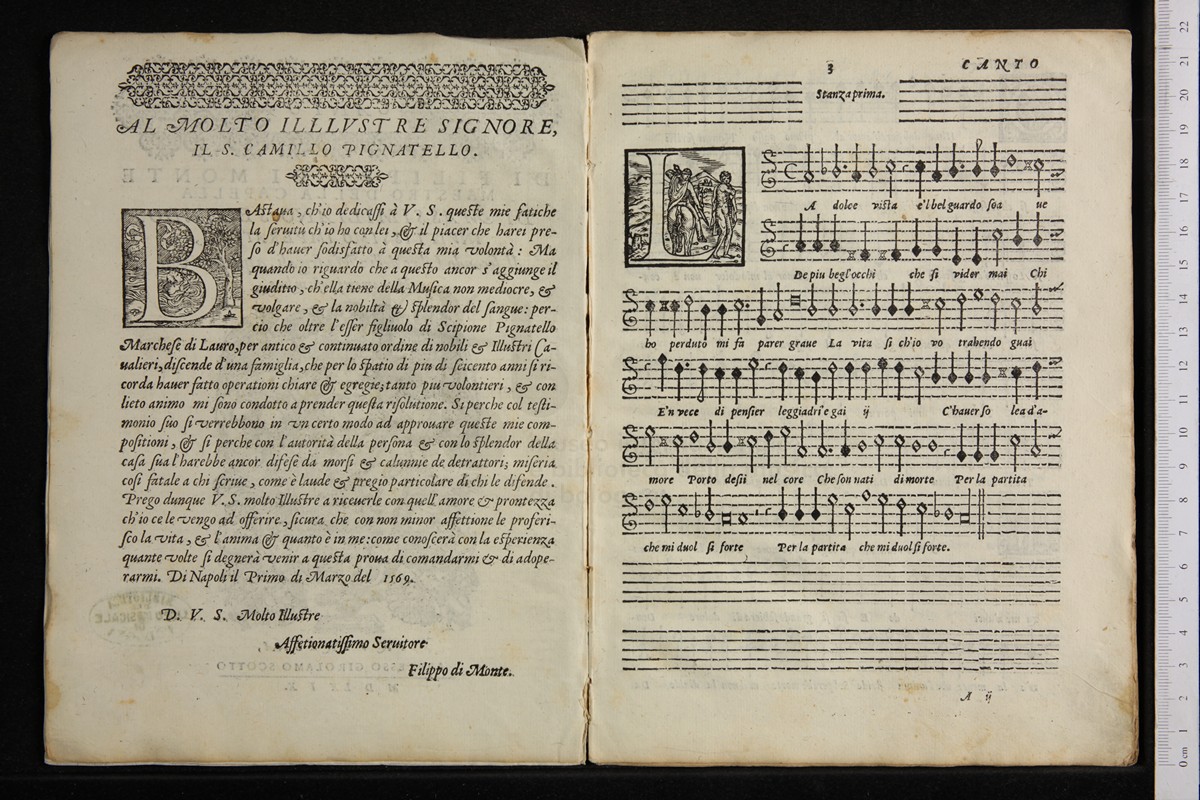 AL MOLTO ILLLVSTRE SIGNORE,
IL S. CAMILLO PIGNATELLO.
BAstaua, ch'io dedicassi à V. S. queste mie fatiche
la seruitù ch'io ho con lei, & il piacer che harei pre-
so d'hauer sodisfatto à questa mia volontà: Ma
quando io riguardo che a questo ancor s'aggiunge il
giuditio, ch'ella tiene della Musica non mediocre, &
volgare, & la nobiltà & splendor del sangue: per-
cio che oltre l'esser figliuolo di Scipione Pignatello
Marchese di Lauro, per antico & continuato ordine di nobili & Illustri Ca-
ualieri, discende d'una famiglia, che per lo spatio di piu di seicento anni si ri-
corda hauer fatto operationi chiare & egregie; tanto piu volontieri, & con
lieto animo mi sono condotto a prender questa risolutione. Si perche col testi-
monio suo si verrebbono in vn certo modo ad approuare queste mie com-
positioni, & si perche con l'autorità della persona & con lo splendor della
casa sua l'harebbe ancor difese da morsi & calunnie de detrattori; miseria
così fatale a chi scriue, come è laude & pregio particolare di chi le difende.
Prego dunque V. S. molto Illustre a riceuerle con quell'amore & prontezza
ch'io ce le vengo ad offerire, sicura che con non minor affettione le proferi-
sco la vita, & l'anima & quanto è in me: come conoscerà con la esperienza
quante volte si degnerà venir a questa proua di comandarmi & di adope-
rarmi. Di Napoli il Primo di Marzo del 1569.
D. V. S. Molto Illustre
Affetionatissimo Seruitore
Filippo di Monte.
3 CANTO
Stanza prima.
LA dolce vista e'l bel guardo soa ue
De piu begl'occhi che si vider mai Chi
ho perduto mi fa parer graue La vita si ch'io vo trahendo guai
E'n vece di pensier leggiadri e gai ij C'hauer so lea d'a-
more Porto desii nel core Che son nati di morte Per la partita
che mi duol si forte Per la partita che mi duol si forte.
A ij